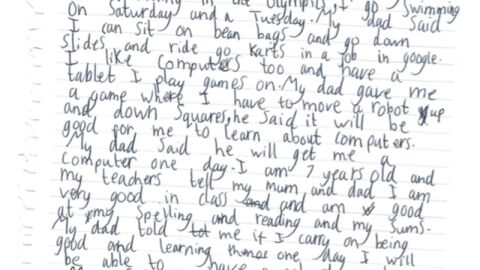 in the Olympics, I go Swimming
on Saturday and a Tuesday. My dad Said
I can sit on bean bags and go down
Slides and ride go karts in a job in google.
I like computers too and have a
tablet I play games on. My dad gave me
a game where I have to move a robot up
and, down Squares, he said it will be
good for me to learn about computers.
My dad said he will get me a
computer one day. I am 7 years old and
my teachers tell my mum and dad I am
very good in class and and am good
at my spelling and reading and my sums.
My dad told me if I carry on being
good and learning one day I will
be able to have a